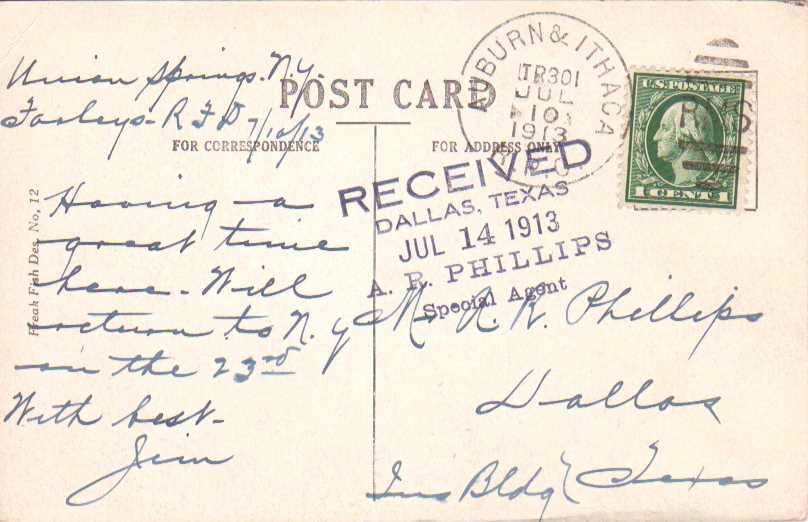 Union Springs. N.Y.
Farleys - R F D 7/10/13
POST CARD
FOR CORRESPONDENCE
FOR ADDRESS ONLY
AUBURN & ITHACA
TR301
JUL
10
1913
R.P.O.
U.S. POSTAGE
1 CENT 1
RECEIVED
DALLAS, TEXAS
JUL 14 1913
A. R. PHILLIPS
Special Agent
Freak Fish Des. No, 12
Having a
great time
here - Will
return to N. Y
on the 23rd
With best -
Jim
Mr. A. R. Phillips
Dallas
Ins Bldg Texas